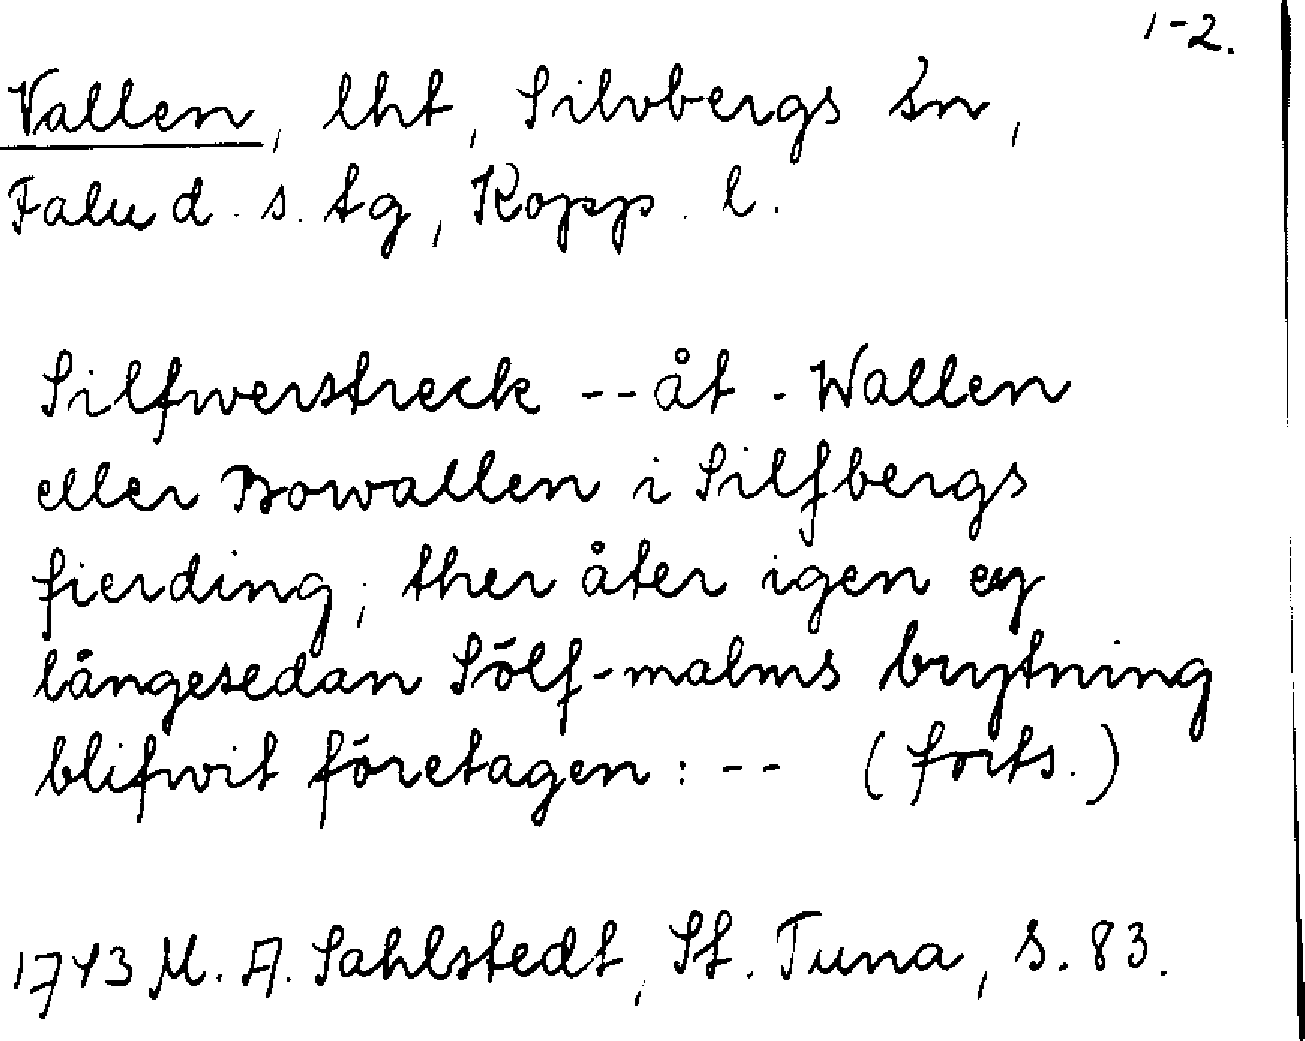 1-2.
Vallen, lht, Silvbergs sn,
Falu d. s. tg, Kopp. l.
Silfwerstreck -- åt - Wallen
eller Bowallen i Silfbergs
fierding, ther åter igen ey
långesedan Sölf-malms brytning
blifwit företagen: -- (forts.)
1743 M. A. Sahlstedt, St. Tuna, s. 83.